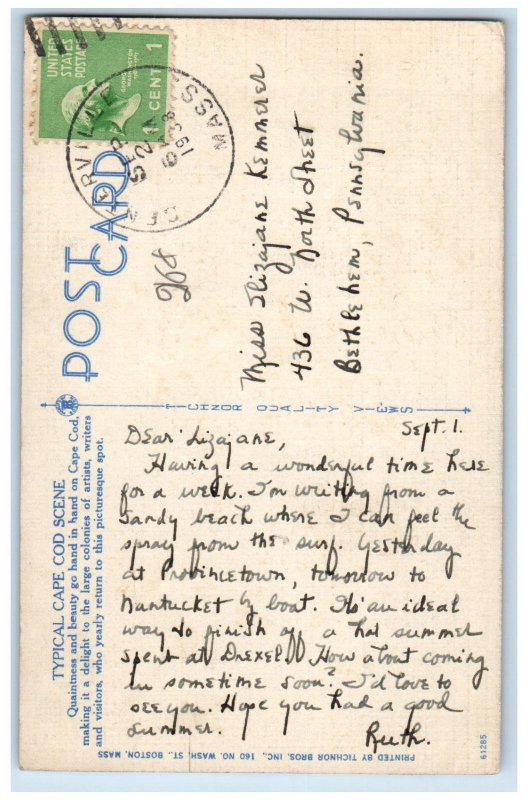 UNITED
STATES
POSTAGE
1 CENT
CENTERVILLE
SEP
2
1938
MASS
POST
CARD
268
Miss Lizajane Kemmerer
436 W. North Street
Bethlehem, Pennsylvania.
TICHNOR QUALITY VIEWS
TYPICAL CAPE COD SCENE
Quaintness and beauty go hand in hand on Cape Cod,
making it a delight to the large colonies of artists, writers
and visitors, who yearly return to this picturesque spot.
Sept. 1.
Dear Lizajane,
Having a wonderful time here
for a week. I'm writing from a
sandy beach where I can feel the
spray from the surf. Yesterday
at Provincetown, tomorrow to
Nantucket by boat. It's an ideal
way to finish off a hot summer
spent at Drexel. How about coming
in sometime soon? I'd love to
see you. Hope you had a good
summer.
Ruth.
PRINTED BY TICHNOR BROS. INC., 160 NO. WASH. ST., BOSTON, MASS
61285